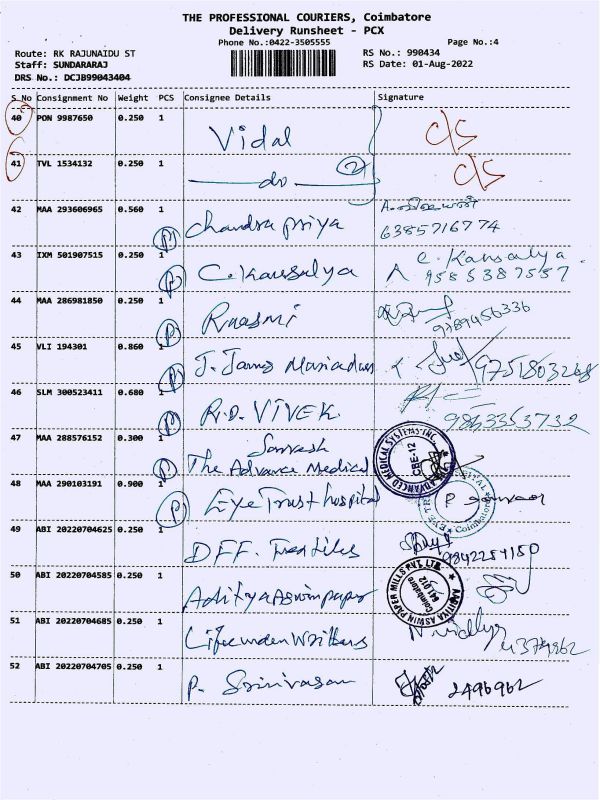 THE PROFESSIONAL COURIERS, Coimbatore
Delivery Runsheet - PCX
Phone No.:0422-3505555 Page No.:4
Route: RK RAJUNAIDU ST RS No.: 990434
Staff: SUNDARARAJ RS Date: 01-Aug-2022
DRS No.: DCJB99043404
S No Consignment No Weight PCS Consignee Details Signature
40 PON 9987650 0.250 1 Vidal C/S
41 TVL 1534132 0.250 1 do 2 C/S
42 MAA 293606965 0.560 1 P Chandra priya 6385716774
43 IXM 501907515 0.250 1 P C. Kausalya C. Kausalya 9585387557
44 MAA 286981850 0.250 1 P Raasmi 9789456336
45 VLI 194301 0.860 1 P J. James Mariadas 9751803268
46 SLM 300523411 0.680 1 P R.D. VIVEK 9863353732
47 MAA 288576152 0.300 1 P Sarvesh The Advance Medical ADVANCED MEDICAL SYSTEMS INC. CBE-12
48 MAA 290103191 0.900 1 P Eye Trust hospital Coimbatore
49 ABI 20220704625 0.250 1 DFF. Textiles 9842254150
50 ABI 20220704585 0.250 1 Aditya Aswin paper ADITYA ASWIN PAPER MILLS PVT. LTD. Coimbatore 641 012
51 ABI 20220704685 0.250 1 Life unden Writters N. Vidhya
52 ABI 20220704705 0.250 1 P. Srinivasan 2496962